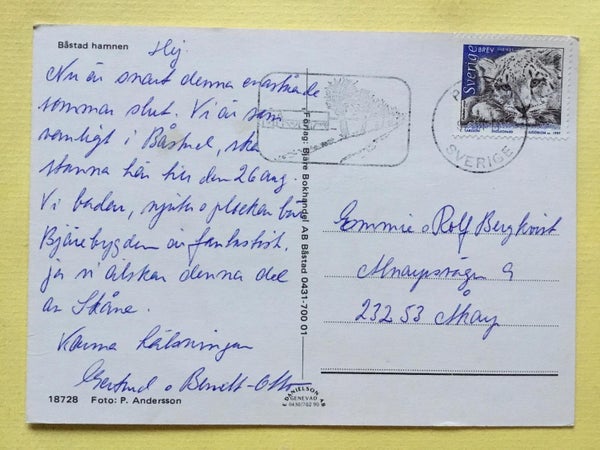 Båstad hamnen
Hej.
Nu är snart denna enastående
sommar slut. Vi är som
vanligt i Båstad, ska
stanna här till den 26 aug.
Vi badar, njuter o plockar bär
Bjärebygden är fantastisk.
ja vi älskar denna del
av Skåne.
Varma hälsningar
Gertrud o Berndt-Otto
18728 Foto: P. Andersson
Förlag: Bjäre Bokhandel AB Båstad 0431-700 01
DANIELSON AB
GENEVAD
0430/702 90
Sverige
BREV
SVERIGE
Emmie o Rolf Bergkvist
Alnarpsvägen 9
232 53 Åkarp